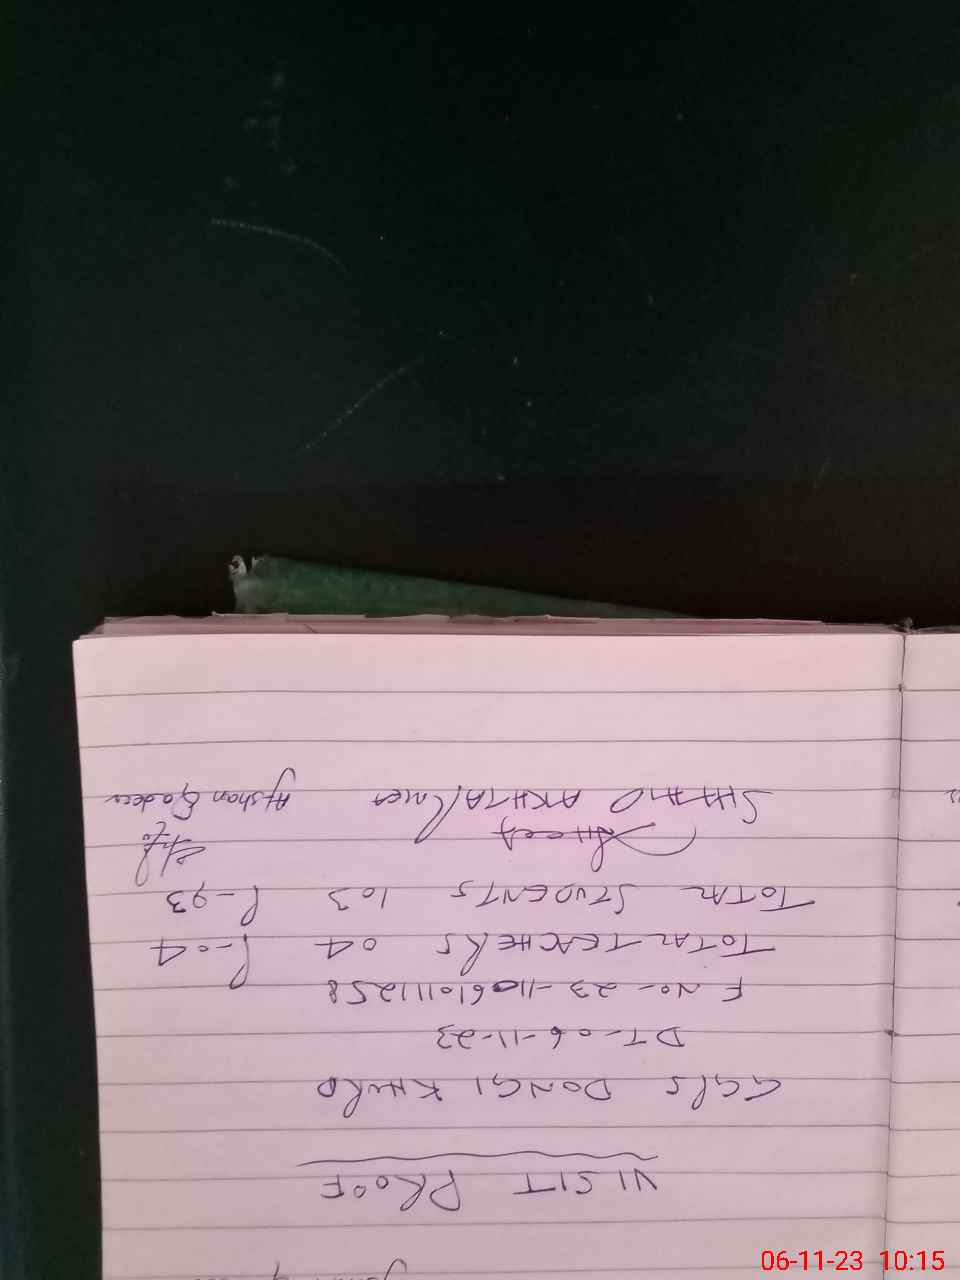 VISIT PROOF
GGPS DONGI KHURD
DT-06-11-23
F No-23-11061011258
TOTAL TEACHERS 04 P-04
TOTAL STUDENTS 103 P-93
SHAHID AKHTAR Afshan
06-11-23 10:15